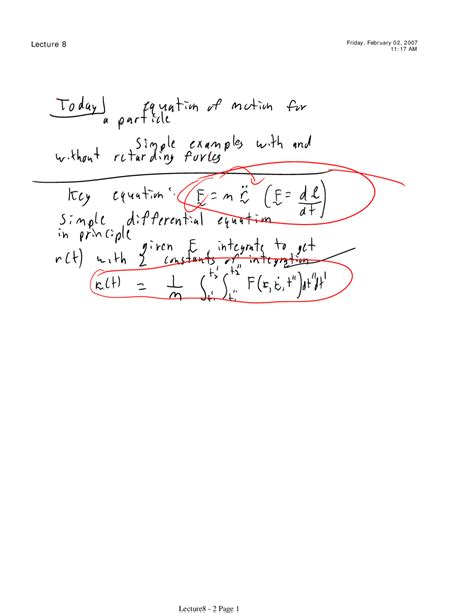 Lecture 8
Friday, February 02, 2007
11:17 AM
Today] Equation of motion for
a particle
Simple examples with and
without retarding forces
Key equation: F = m r̈ (F = dp/dt)
Simple differential equation
in principle
given F integrate to get
r(t) with 2 constants of integration
r(t) = 1/m ∫ ∫ F(r, ṙ, t")dt"dt'
Lecture8 - 2 Page 1